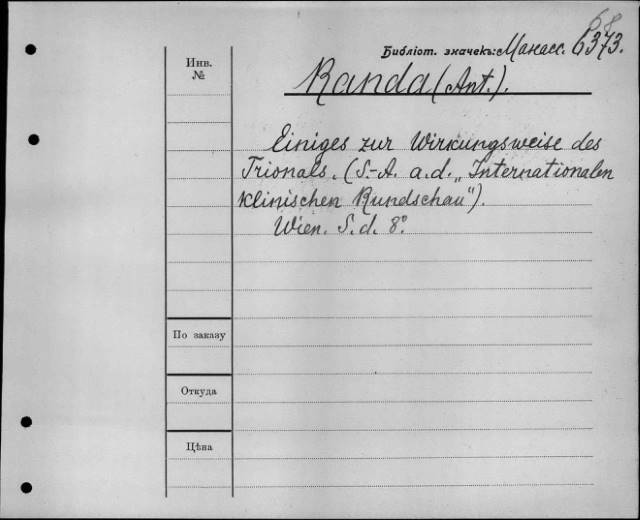 68
Библіот. значекъ: Манасс. 6373.
Инв.
№
Randa (Ant.).
Einiges zur Wirkungsweise des
Trionals. (S.-A. a. d. „Internationalen
klinischen Rundschau").
Wien. S. d. 8°.
По заказу
Откуда
Цѣна